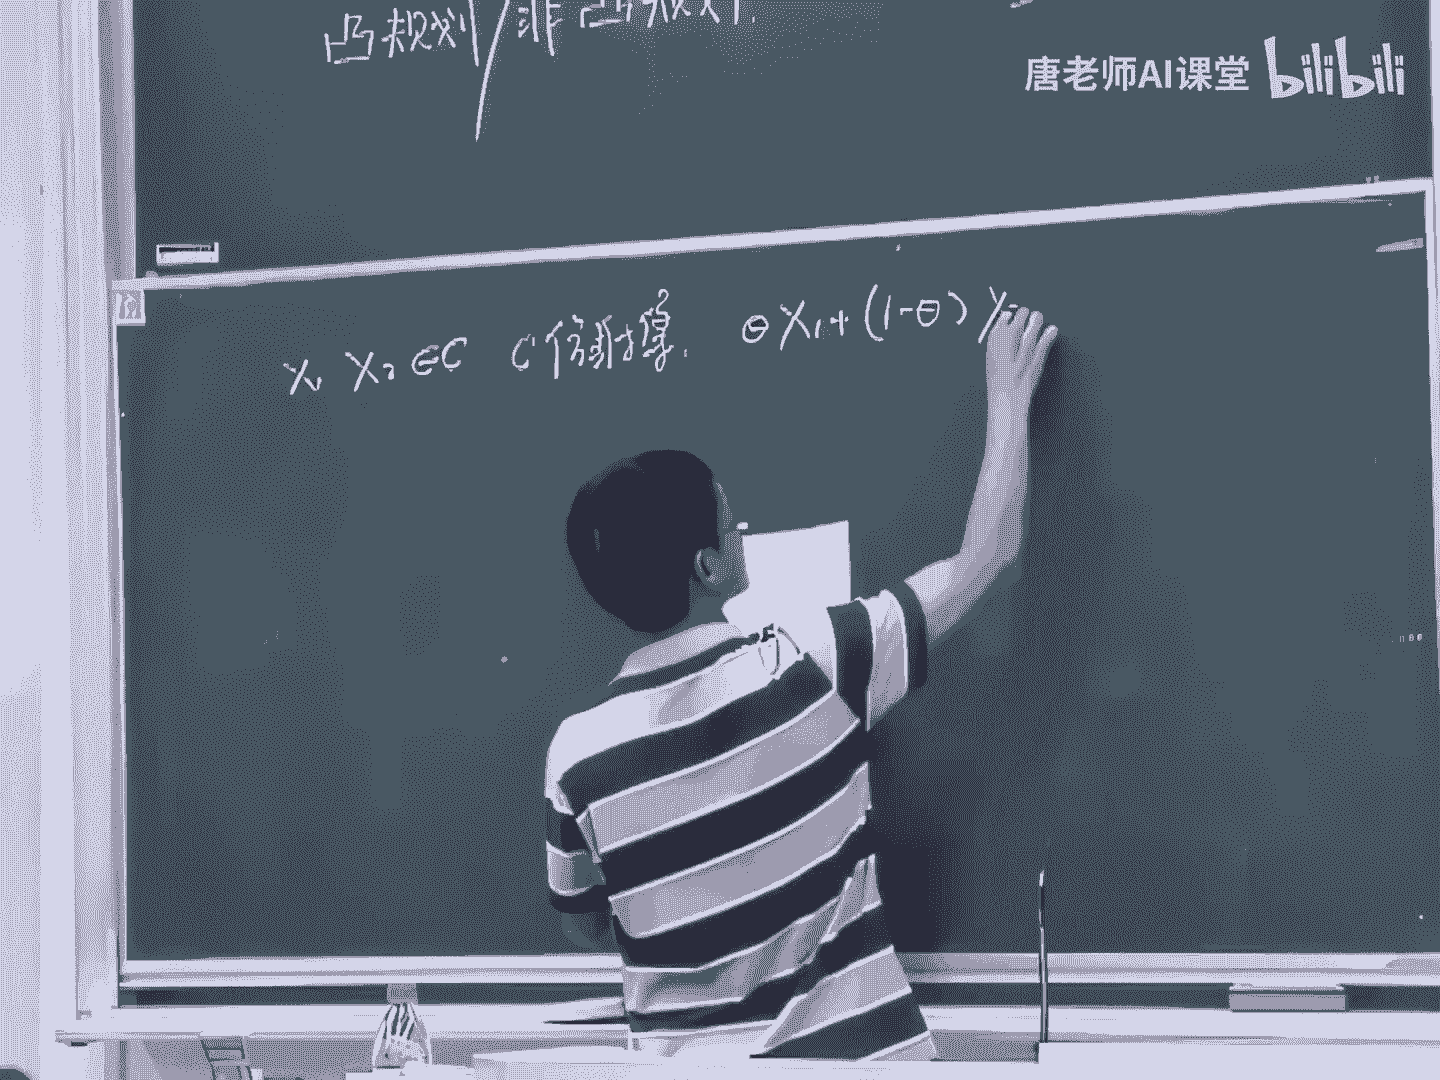 凸规划/非凸规划.
唐老师AI课堂 bilibili
X₁ X₂ ∈C C仿射集. θX₁+(1-θ)X₂